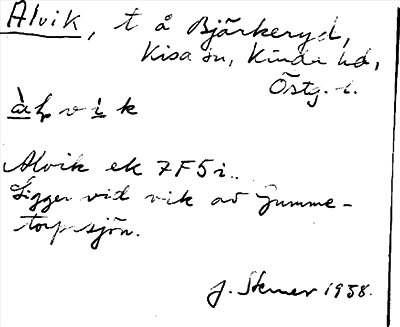 Alvik, t å Bjärkeryd,
Kisa sn, Kinda hd,
Östg. l.
àḷvik
Alvik ek 7F5i.
Ligger vid vik av Gumme-
torpsjön.
J. Stener 1958.